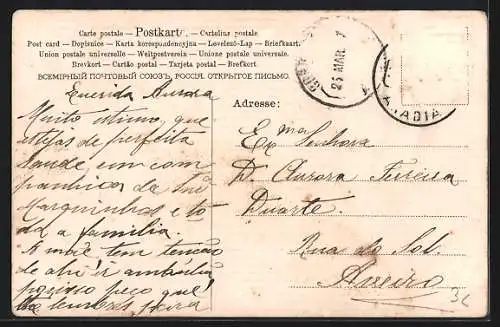 Carte postale – Postkarte – Cartolina postale
Post card – Dopisnice – Karta korespondencyjna – Levelező-Lap – Briefkaart
Union postale universelle – Weltpostverein – Unione postale universale
Brevkort – Cartão postal – Tarjeta postal – Brefkort
ВСЕМІРНЫЙ ПОЧТОВЫЙ СОЮЗЪ, РОССІЯ. ОТКРЫТОЕ ПИСЬМО.
25 MAR
ADIA
Querida Aurora
Muito estimo, que
estejas de perfeita
saude em com
panhica da
Marquinhas e to
da a familia.
A mãe tem tenção
de
por isso peço que
lembres
Adresse:
Exma Senhora
D. Aurora
Duarte.
Rua do Sol.
Aveiro